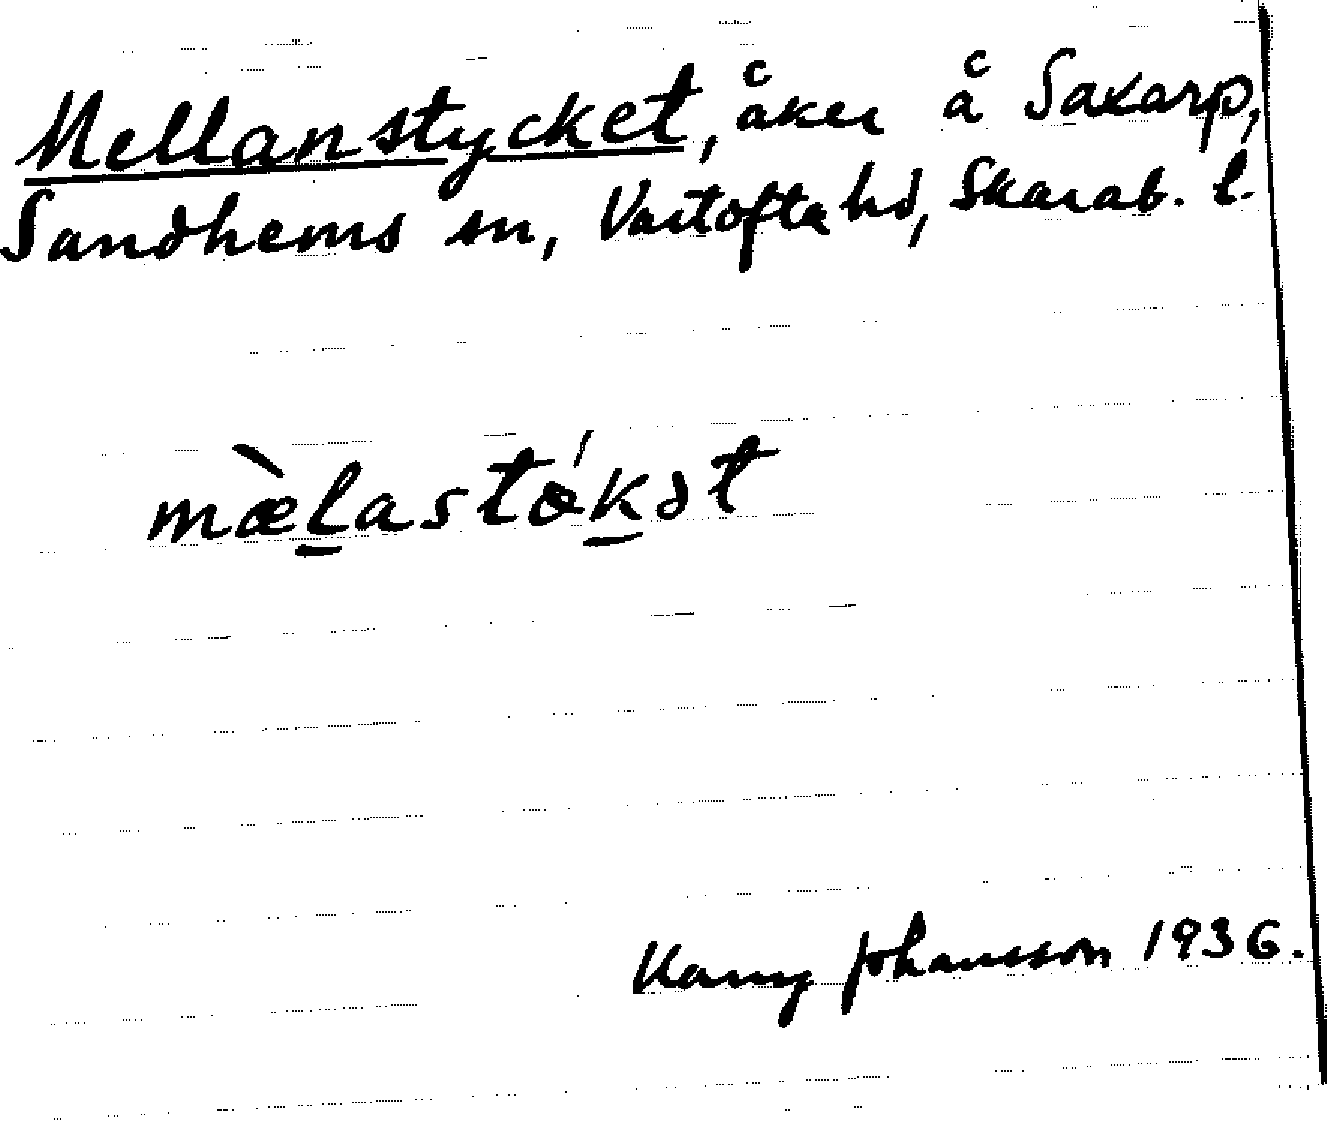 Mellanstycket, åker å Saxarp,
Sandhems sn, Vartofta hd, Skarab. l.
mæ̀l̠astǿk̠ət
Johansson 1936.